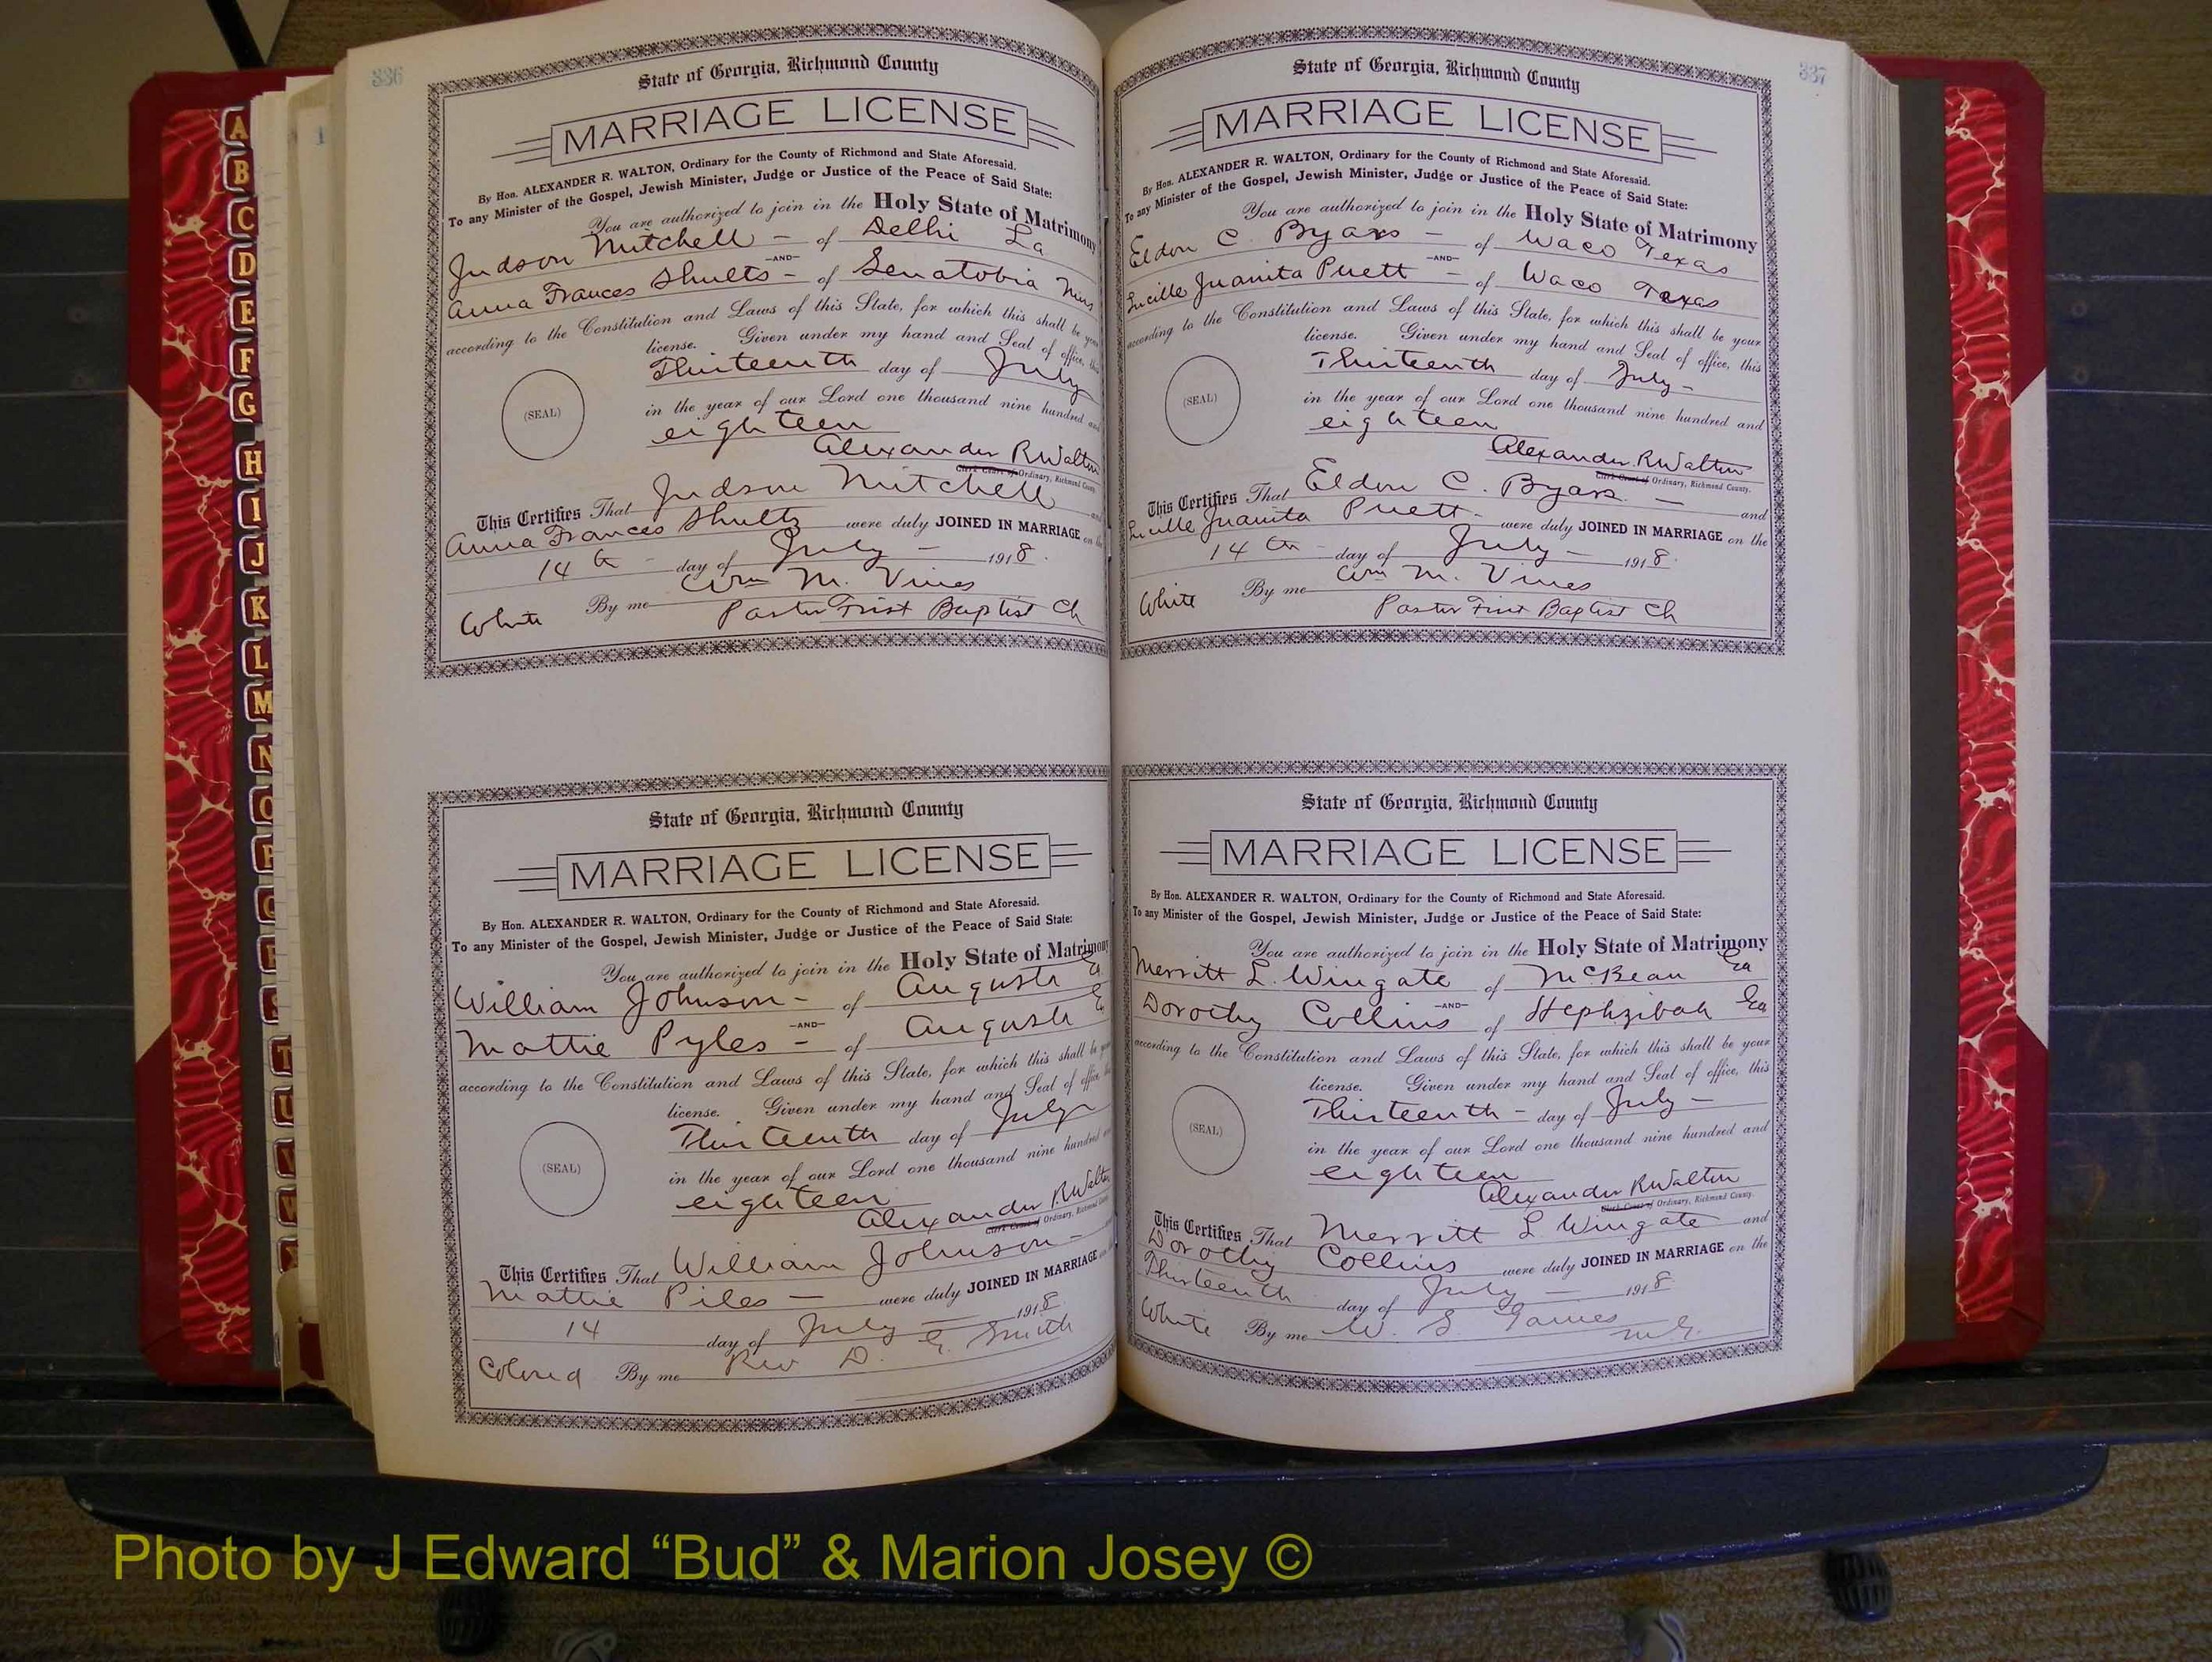 336
State of Georgia, Richmond County
MARRIAGE LICENSE
By Hon. ALEXANDER R. WALTON, Ordinary for the County of Richmond and State Aforesaid.
To any Minister of the Gospel, Jewish Minister, Judge or Justice of the Peace of Said State:
You are authorized to join in the Holy State of Matrimony
Judson Mitchell - of Delhi La
-AND-
Anna Frances Shults - of Senatobia Miss
according to the Constitution and Laws of this State, for which this shall be your
license. Given under my hand and Seal of office, this
Thirteenth day of July
(SEAL)
in the year of our Lord one thousand nine hundred and
eighteen
Alexander R Walton
Clerk Court of Ordinary, Richmond County.
This Certifies That Judson Mitchell and
Anna Frances Shultz were duly JOINED IN MARRIAGE on the
14 th - day of July - 1918.
White By me Wm M. Vines
Pastor First Baptist Ch
State of Georgia, Richmond County
MARRIAGE LICENSE
By Hon. ALEXANDER R. WALTON, Ordinary for the County of Richmond and State Aforesaid.
To any Minister of the Gospel, Jewish Minister, Judge or Justice of the Peace of Said State:
You are authorized to join in the Holy State of Matrimony
William Johnson - of Augusta Ga
-AND-
Mattie Pyles - of Augusta Ga
according to the Constitution and Laws of this State, for which this shall be your
license. Given under my hand and Seal of office, this
Thirteenth day of July
(SEAL)
in the year of our Lord one thousand nine hundred and
eighteen
Alexander R Walton
Clerk Court of Ordinary, Richmond County
This Certifies That William Johnson -
Mattie Piles - were duly JOINED IN MARRIAGE on the
14 day of July - 1918.
Colored By me Rev D. G. Smith
337
State of Georgia, Richmond County
MARRIAGE LICENSE
By Hon. ALEXANDER R. WALTON, Ordinary for the County of Richmond and State Aforesaid.
To any Minister of the Gospel, Jewish Minister, Judge or Justice of the Peace of Said State:
You are authorized to join in the Holy State of Matrimony
Eldon C. Byars - of Waco Texas
-AND-
Lucille Juanita Puett - of Waco Texas
according to the Constitution and Laws of this State, for which this shall be your
license. Given under my hand and Seal of office, this
Thirteenth day of July -
(SEAL)
in the year of our Lord one thousand nine hundred and
eighteen
Alexander R Walton
Clerk Court of Ordinary, Richmond County.
This Certifies That Eldon C. Byars - and
Lucille Juanita Puett - were duly JOINED IN MARRIAGE on the
14 th - day of July - 1918.
White By me Wm M. Vines
Pastor First Baptist Ch
State of Georgia, Richmond County
MARRIAGE LICENSE
By Hon. ALEXANDER R. WALTON, Ordinary for the County of Richmond and State Aforesaid.
To any Minister of the Gospel, Jewish Minister, Judge or Justice of the Peace of Said State:
You are authorized to join in the Holy State of Matrimony
Merritt L. Wingate of McBean Ga
-AND-
Dorothy Collins of Hephzibah Ga
according to the Constitution and Laws of this State, for which this shall be your
license. Given under my hand and Seal of office, this
Thirteenth - day of July -
(SEAL)
in the year of our Lord one thousand nine hundred and
eighteen
Alexander R Walton
Clerk Court of Ordinary, Richmond County.
This Certifies That Merritt L Wingate and
Dorothy Collins were duly JOINED IN MARRIAGE on the
Thirteenth day of July - 1918
White By me W. S. M.G.
A
B
C
D
E
F
G
H
I
J
K
L
M
N
O
P
Q
R
S
T
U
V
W
Photo by J Edward “Bud” & Marion Josey ©